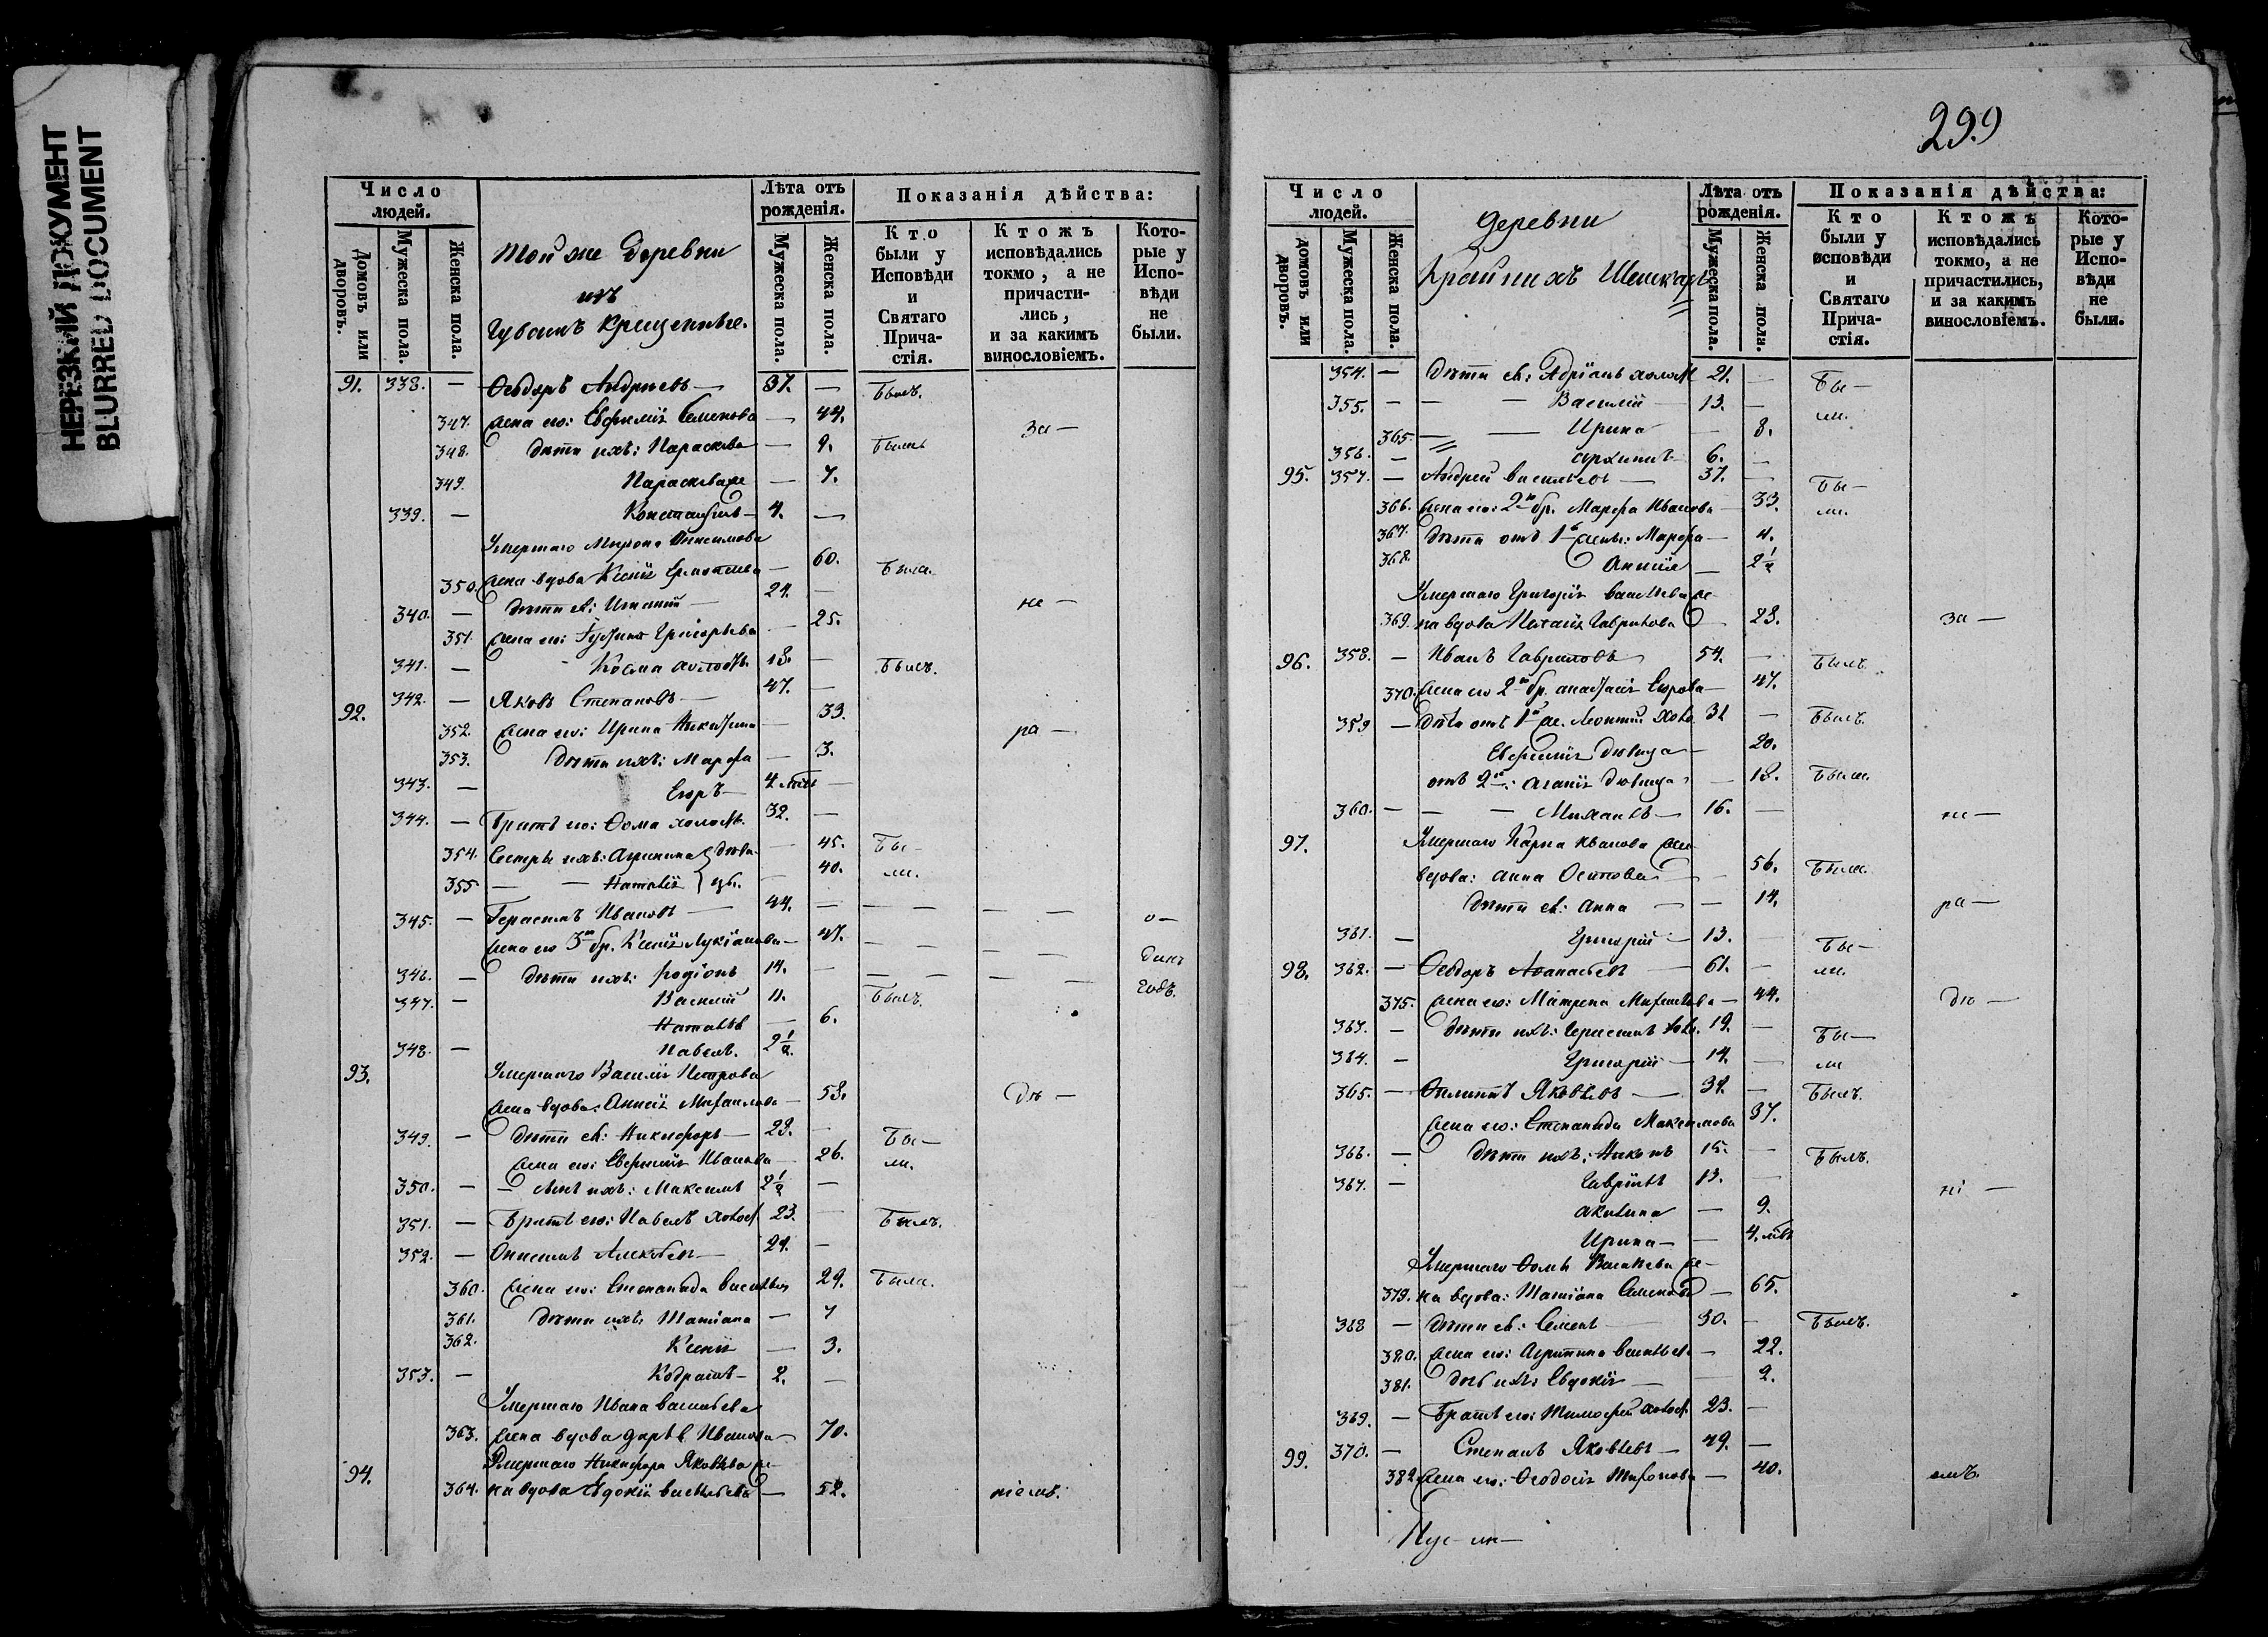 НЕРЕЗКИЙ ДОКУМЕНТ
BLURRED DOCUMENT
Число людей.
Домовъ или дворовъ.
Мужеска пола.
Женска пола.
Той же Деревни
изъ
Чувашъ крещеныхъ.
Лѣта отъ рожденія.
Мужеска пола.
Женска пола.
Показанія дѣйства:
Кто были у Исповѣди и Святаго Причастія.
Ктожъ исповѣдались токмо, а не причастились, и за какимъ винословіемъ.
Которые у Исповѣди не были.
91. 338. — Ѳеодоръ Андреевъ — 37. — Былъ.
347. жена его: Евфимія Семенова — 44. за —
348. дѣти ихъ: Параскева — 9. Была
349. Параскева же — 7.
339. — Константинъ — 4. —
Умершаго Мирона Анисимова
350. жена вдова Ксенія — 60. Была.
340. — дѣти ея: Игнатій — 24. — не —
351. жена его: Григорьева — 25.
341. — Косма холостъ 18. — Былъ.
92. 342. — Яковъ Степановъ — 47. —
352. жена его: Ирина Никитина — 33. ра —
353. дѣти ихъ: Марѳа — 3.
343. — Егоръ — 4 —
344. — Братъ его: Ѳома холостъ. 32. —
354. Сестры ихъ: Агрипина } дѣви- — 45. Бы —
355 — — Наталія } цы. — 40. ли.
345. — Герасимъ Ивановъ — 44. — — — — — о —
жена его 3мъ бр. Ксенія Лукіанова — 47. — — — — динъ
346. — дѣти ихъ: Родіонъ 14. — — — — — годъ.
347. — Василій 11. Былъ.
Наталья — 6.
348. — Павелъ. 2 1/2.
93. Умершаго Василія Петрова
жена вдова: Аннія Михаилова — 58. дѣ —
349. — дѣти ея: Никифоръ — 28. — Бы —
жена его: Евфимія Иванова — 26. ли.
350. — — сынъ ихъ: Максимъ 2 1/2 —
351. — Братъ его: Павелъ холост. 23. — Былъ.
352. — Онисимъ Алексѣевъ — 24. —
360. жена его: Степанида Васильева 29. Была.
361. дѣти ихъ: Татіана — 7
362. Ксенія — 3.
353. — Кодратъ — 2. —
Умершаго Ивана Васильева
363. жена вдова Дарья Иванова — 70.
94. Умершаго Никифора Яковлева же-
364. на вдова Евдокія Васильева — 52. ніемъ.
299
Число людей.
домовъ или дворовъ.
Мужеска пола.
Женска пола.
деревни
Крайнихъ Шешкаръ
Лѣта отъ рожденія.
Мужеска пола.
Женска пола.
Показанія дѣйства:
Кто были у исповѣди и Святаго Причастія.
Ктожъ исповѣдались токмо, а не причастились, и за какимъ винословіемъ.
Которые у Исповѣди не были.
354. — дѣти ея: Адріанъ холост 21. — Бы —
355. — — — Василій — 13. — ли.
365. — — Ирина — 8.
356. — Архипъ 6. —
95. 357. — Андрей Васильевъ — 37. — Бы —
366. жена его: 2мъ бр. Марѳа Иванова — 33. ли.
367. дѣти отъ 1й жены: Марѳа — 4.
368. Аннія — 2 1/2
Умершаго Григорія Васильева же-
369. на вдова Наталія Гаврилова — 28. за —
96. 358. — Иванъ Гавриловъ — 54. — Былъ.
370. жена его 2мъ бр. Анастасія Егорова — 47.
359 — дѣти отъ 1й же. Леонтій холо. 31 — Былъ.
Евфимія дѣвица — 20.
отъ 2й: Агапія дѣвица — 18. Была.
360. — — — Михаилъ — 16. — не —
97. Умершаго Карпа Иванова жен
вдова: Анна Осипова — 56. Была.
дѣти ея: Анна — — 14. ра —
361. — Григорій — 13. — Бы —
98. 362. — Ѳеодоръ Аѳанасьевъ — 61. — ли.
375. жена его: Матрена Михаилова — 44. дѣ —
363. — дѣти ихъ: Герасимъ хол. 19. — Бы —
364. — Григорій — 14. — ли
365. — Филиппъ Яковлевъ — 34. — Былъ.
жена его: Степанида Максимова 37.
366. — дѣти ихъ: Никонъ 15. — Былъ.
367. — Гавріилъ 13. — ні —
Акилина — 9.
Ирина — — 4.
Умершаго Ѳомы Васильева же-
379. на вдова: Татіана Семенова — 65.
368 — дѣти ея: Семенъ — 30. — Былъ.
380. жена его: Агрипина Васильев. — 22.
381. дочь ихъ: Евдокія — — 2.
369. — Братъ его: Тимофей холост. 23. —
99. 370. — Степанъ Яковлевъ — 49. —
382. жена его: Ѳеодосія — 40. емъ.